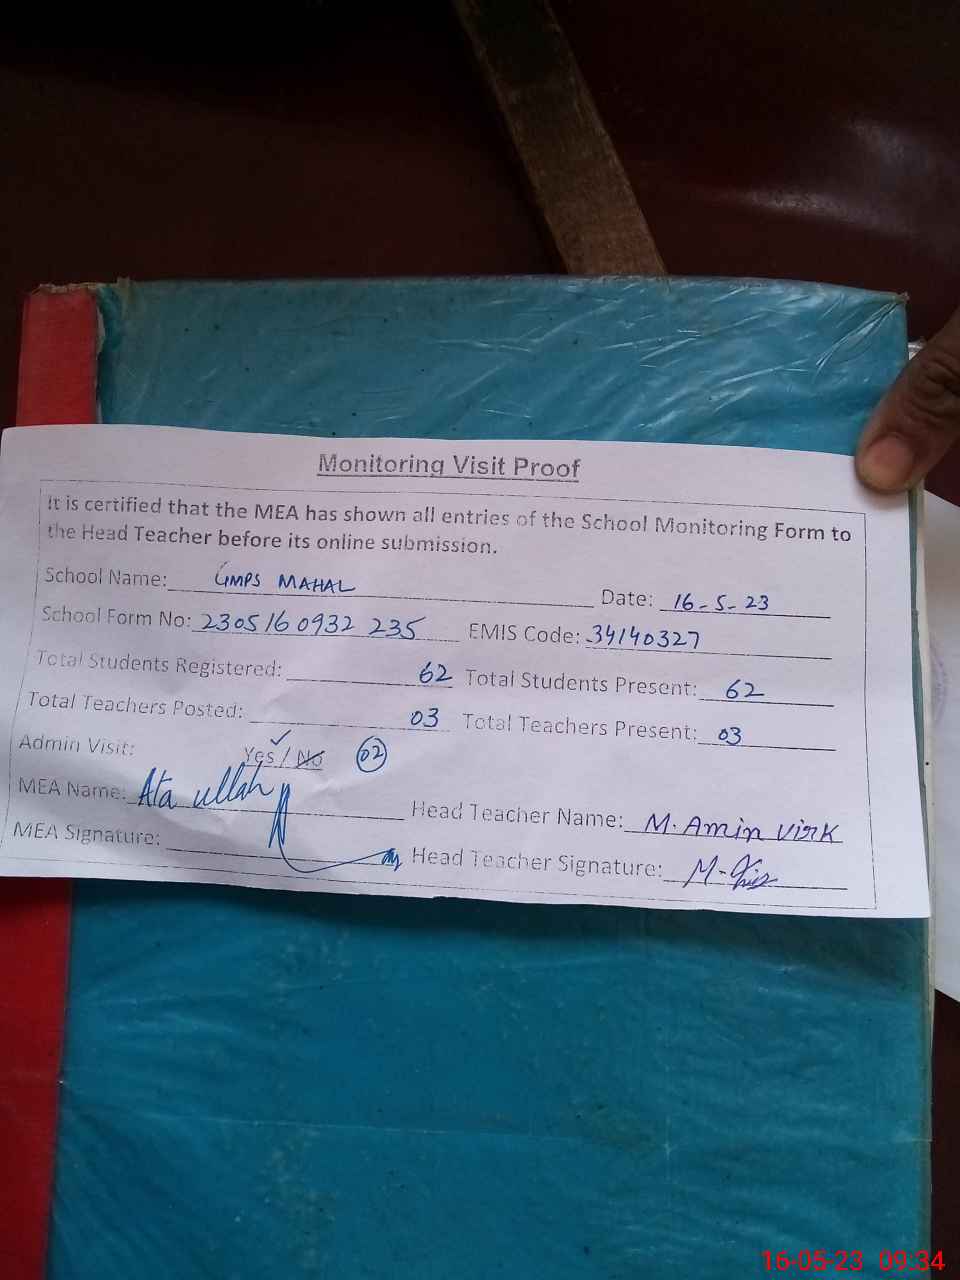 Monitoring Visit Proof
It is certified that the MEA has shown all entries of the School Monitoring Form to
the Head Teacher before its online submission.
School Name: GMPS MAHAL Date: 16-5-23
School Form No: 2305160932 235 EMIS Code: 34140327
Total Students Registered: 62 Total Students Present: 62
Total Teachers Posted: 03 Total Teachers Present: 03
Admin Visit: Yes / No 02
MEA Name: Ata ullah Head Teacher Name: M. Amin Virk
MEA Signature: Head Teacher Signature:
16-05-23 09:34